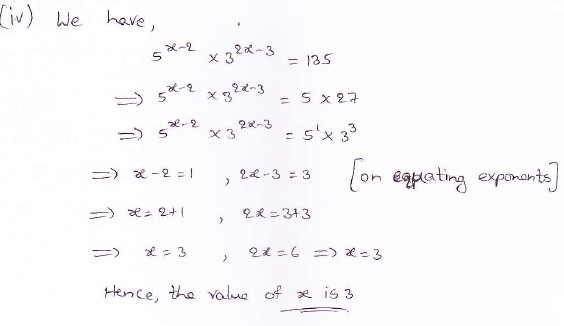 (iv) We have,
5^{x-2} × 3^{2x-3} = 135
⇒ 5^{x-2} × 3^{2x-3} = 5 × 27
⇒ 5^{x-2} × 3^{2x-3} = 5^1 × 3^3
⇒ x-2 = 1 , 2x-3 = 3 [on equating exponents]
⇒ x = 2+1 , 2x = 3+3
⇒ x = 3 , 2x = 6 ⇒ x = 3
Hence, the value of x is 3